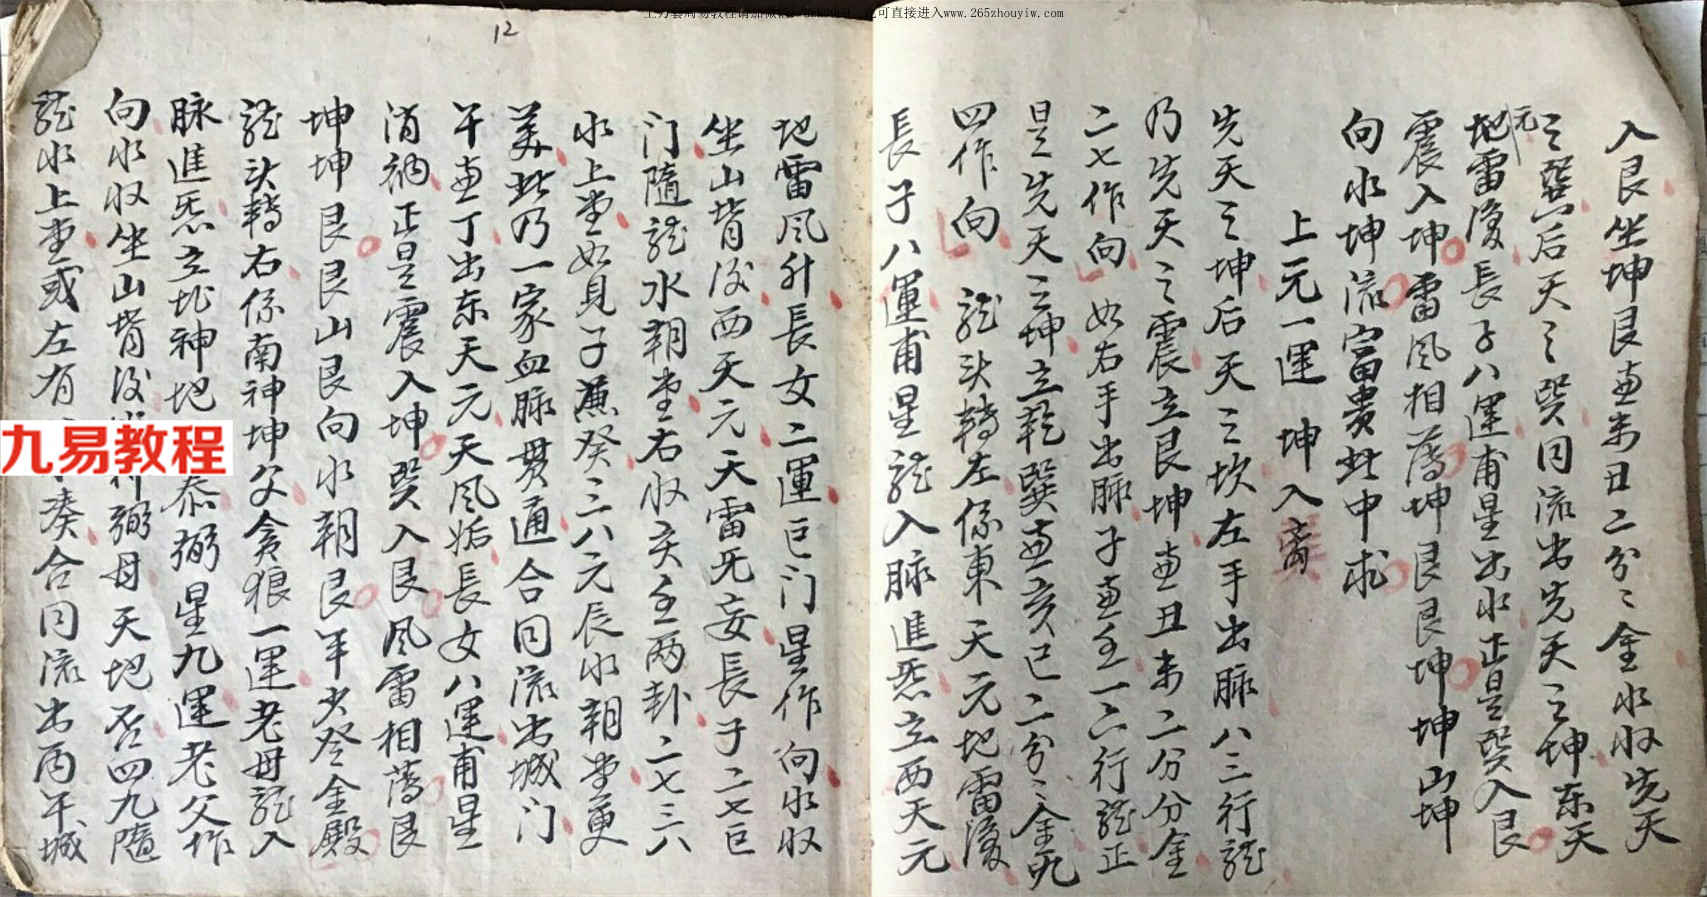 可直接进入www.265zhouyiw.com
12
入艮坐坤艮兼未丑二分金水收先天
之巽后天之巽同流出先天之坤东天
元
地雷復長子八運甫星出水正是巽入艮
震入坤雷風相薄坤艮艮坤山坤
向水坤流富貴此中求
上元一運 坤入离
先天之坤后天之坎左手出脉八三行龍
乃先天之震立艮坤兼丑未二分分金
二七作向如右手出脉子兼壬一六行龍正
是先天之坤立乾巽兼亥巳二分金九
四作向 龍头轉左係東天元地雷復
長子八運甫星龍入脉進炁立西天元
地雷風升長女二運巨门星作向水收
坐山背後西天元天雷无妄長子二七巨
门隨龍水朝堂右收亥壬两卦二七三六
水上堂如見子兼癸三八元辰水朝堂更
美此乃一家血脉貫通合同流出城门
午兼丁出东天元天風姤長女八運甫星
消納正是震入坤巽入艮風雷相薄艮
坤坤艮艮山艮向水朝艮年少登金殿
龍头轉右係南神坤父貪狼一運老母龍入
脉進炁立北神地泰弼星九運老父作
向水收坐山背後弼母天地否四九隨
龍水上堂或左右湊合同流出丙午城
九易教程